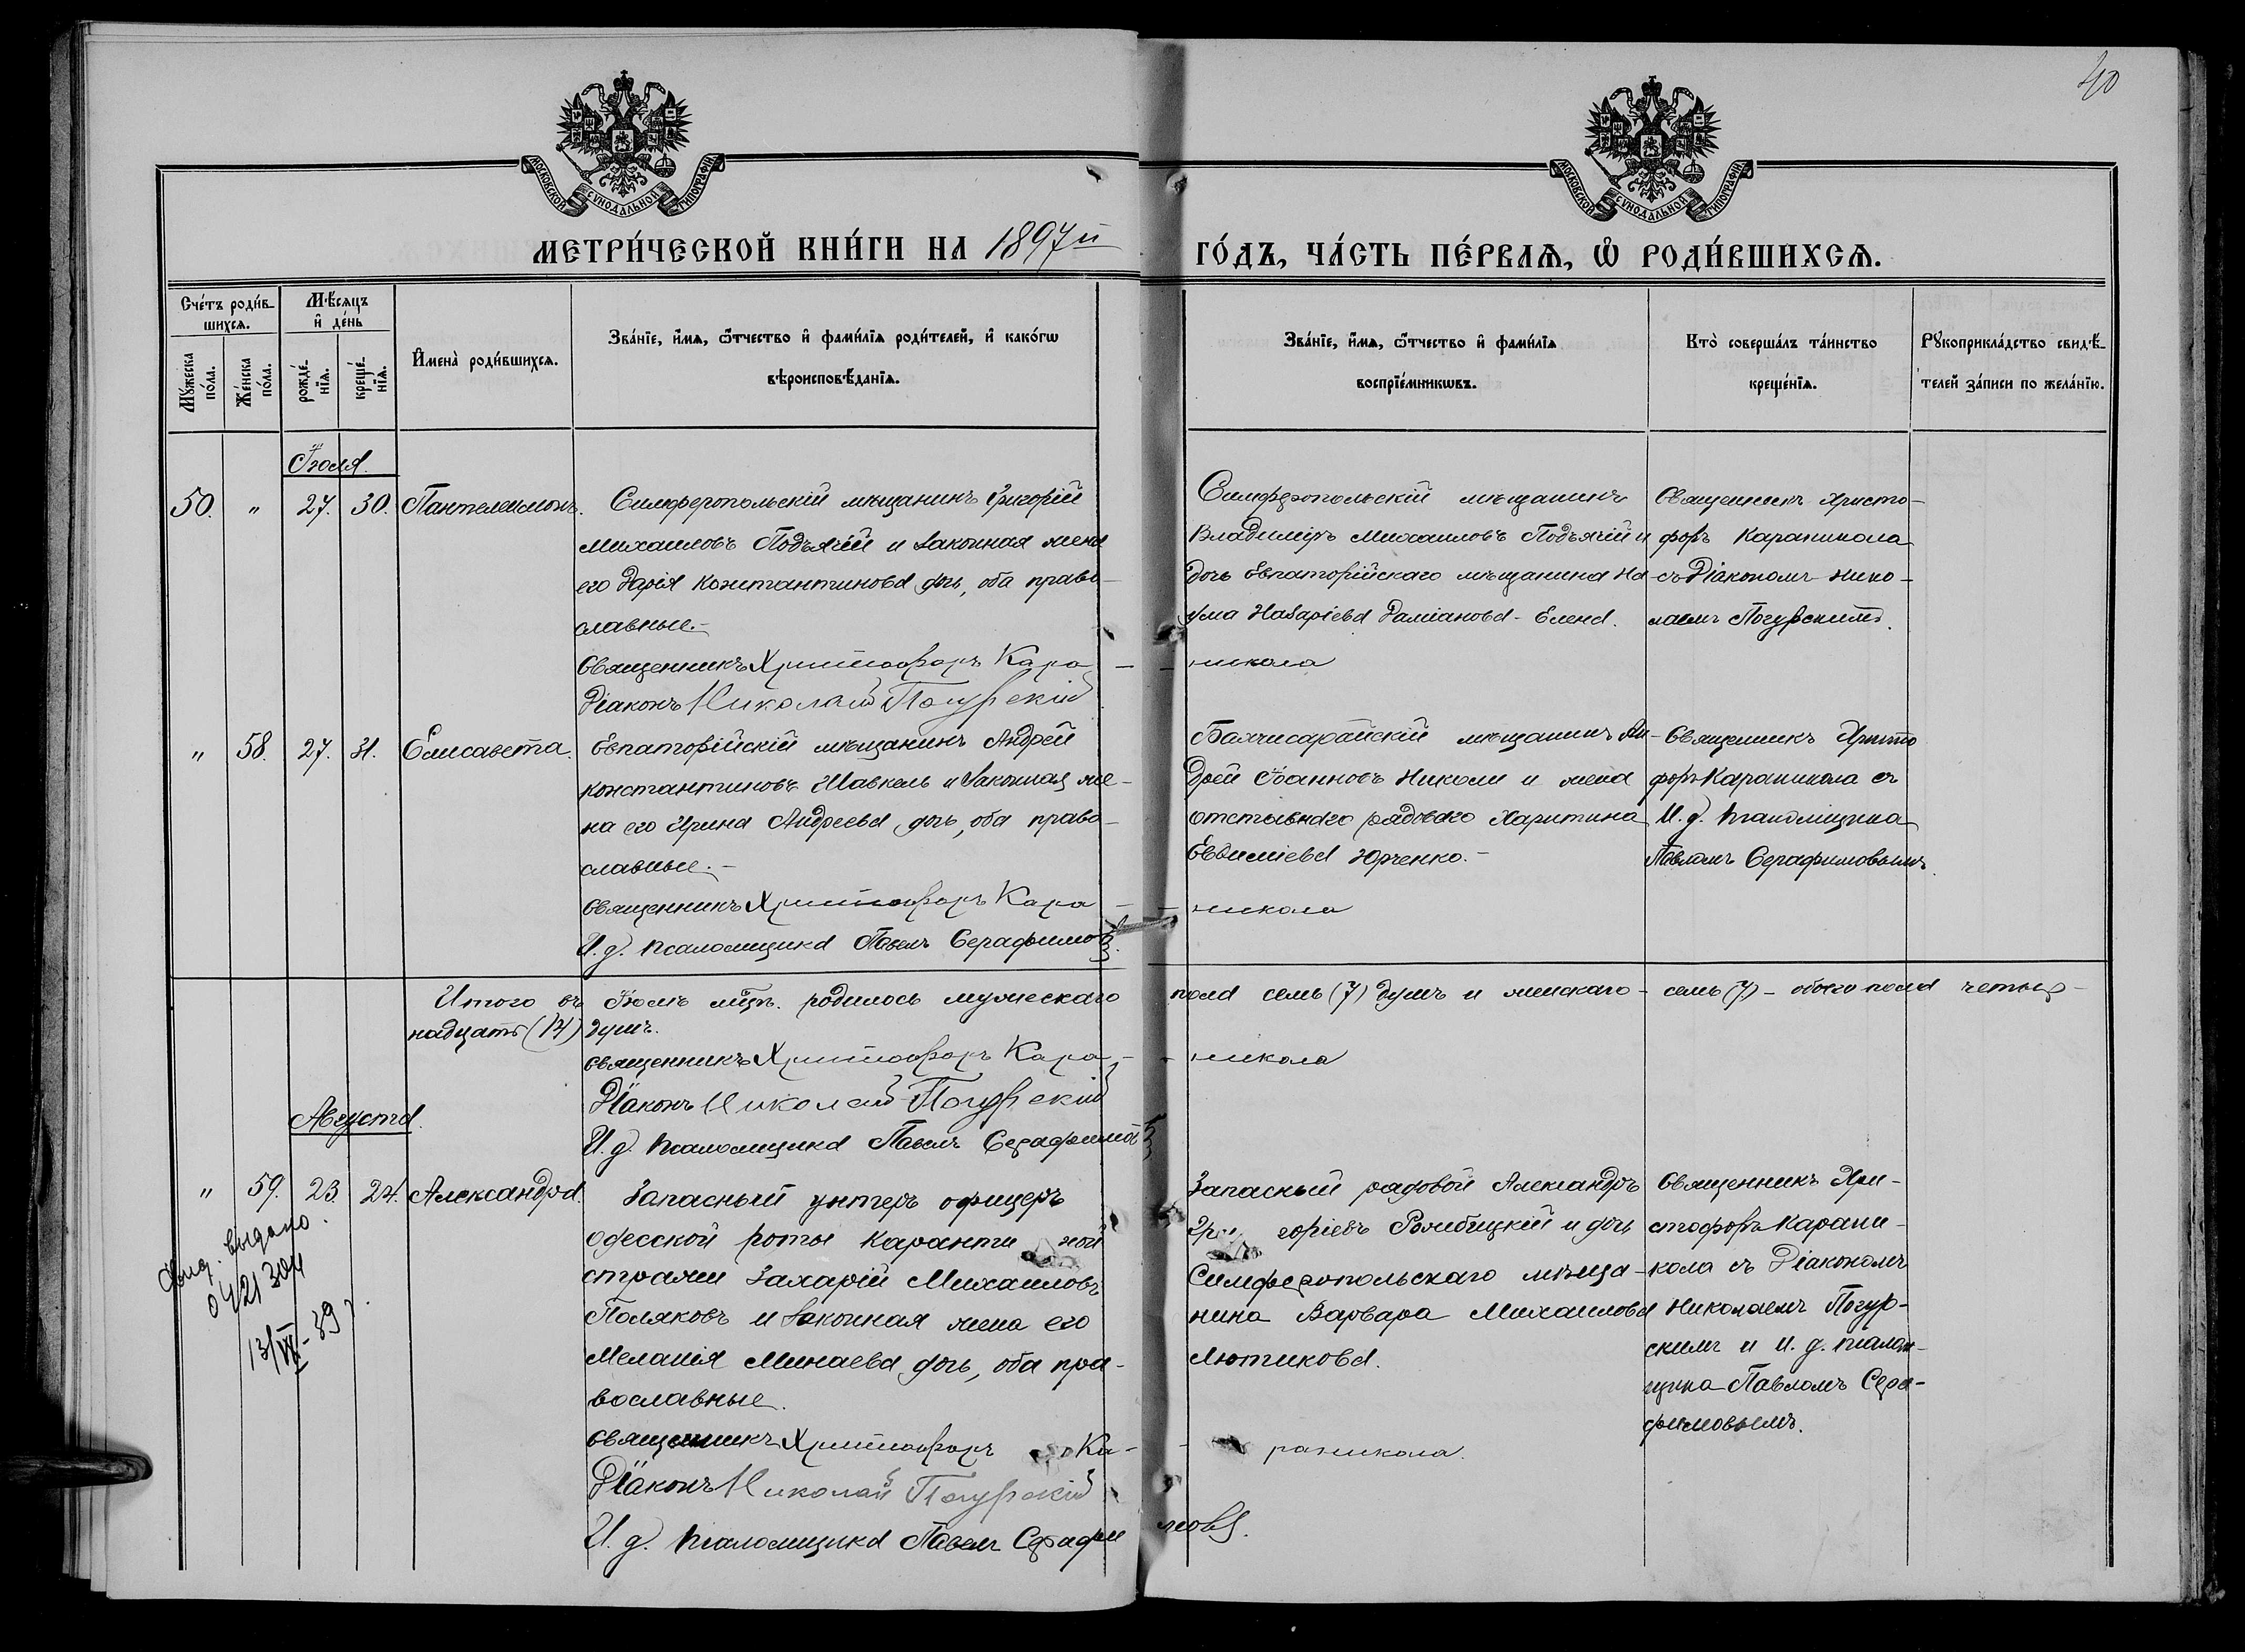 40
МОСКОВСКОЙ СѴНОДАЛЬНОЙ ТИПОГРАФІИ
МОСКОВСКОЙ СѴНОДАЛЬНОЙ ТИПОГРАФІИ
МЕТРИ́ЧЕСКОЙ КНИ́ГИ НА 1897й ГО́ДЪ, ЧА́СТЬ ПЕ́РВАѦ, Ѽ РОДИ́ВШИХСѦ.
Сче́тъ роди́в-
шихсѧ.
Мꙋ́жеска по́ла.
Же́нска по́ла.
Мѣ́сѧцъ
и҆ де́нь
рожде́-
нїѧ.
креще́-
нїѧ.
И҆мена̀ роди́вшихсѧ.
Зва́нїе, и҆́мѧ, ѻ҆́тчество и҆ фами́лїѧ роди́телей, и҆ како́гѡ
вѣроисповѣ́данїѧ.
Зва́нїе, и҆́мѧ, ѻ҆́тчество и҆ фами́лїѧ
воспрїе́мникѡвъ.
Кто̀ соверша́лъ та́инство
креще́нїѧ.
Рꙋкоприкла́дство свидѣ́-
телей за́писи по жела́нїю.
Іюля.
50. " 27. 30. Пантелеимонъ.
Симферопольскій мѣщанинъ Григорій
Михаиловъ Подъячій и законная жена
его Дарія Константинова дочь, оба право-
славные.-
Священникъ Христофоръ Кара - - никола
Діаконъ Николай Погурскій
Симферопольскій мѣщанинъ
Владиміръ Михаиловъ Подъячій и
дочь Евпаторійскаго мѣщанина На-
ума Назаріева Даміанова - Елена.
Священникъ Христо-
форъ Караникола
съ Діакономъ Нико-
лаемъ Погурскимъ.
" 58. 27. 31. Елисавета.
Евпаторійскій мѣщанинъ Андрей
Константиновъ Шавкель и законная же-
на его Ирина Андреева дочь, оба право-
славные.-
Священникъ Христофоръ Кара - - никола
И. д. псаломщика Павелъ Серафимовъ.
Бахчисарайскій мѣщанинъ Ан-
дрей Іоанновъ Николи и жена
отставнаго рядоваго Харитина
Евдиміева Юрченко.-
Священникъ Христо
форъ Караникола съ
И. д. псаломщика
Павломъ Серафимовымъ.
Итого въ Іюлѣ мцѣ. родилось мужескаго пола семь (7) душъ и женскаго - семь (7) - обоего пола четыр-
надцать (14) душъ.
Священникъ Христофоръ Кара - - никола
Діаконъ Николай Погурскій
И. д. псаломщика Павелъ Серафимовъ
Августа.
" 59. 23. 24. Александра.
Запасный унтеръ офицеръ
Одесской роты Каранти ной
стражи Захарій Михаиловъ
Поляковъ и законная жена его
Меланія Минаева дочь, оба пра-
вославные.
Священникъ Христофоръ Ка- - раникола.
Діаконъ Николай Погурскій
И. д. псаломщика Павелъ Серафи мовъ.
Запасный рядовой Александръ
Гри горіевъ Рожбицкій и дочь
Симферопольскаго мѣща-
нина Варвара Михаилова
Лютикова.
Священникъ Хри-
стофоръ Карани-
кола съ Діакономъ
Николаемъ Погур-
скимъ и И. д. псалом-
щика Павломъ Сера-
фимовымъ.
Свид. выдано.
0421304
13/VI - 39 г.